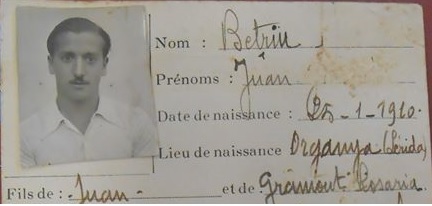 Nom : Betriu
Prénoms : Juan
Date de naissance : 25-1-1910.
Lieu de naissance Organya (Lérida)
Fils de : Juan - et de Gramout Rosaria